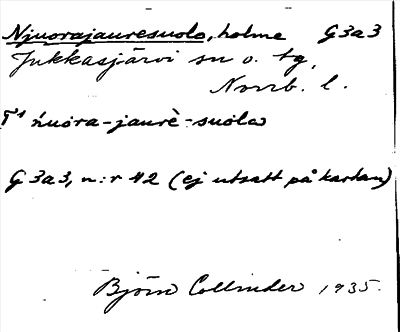 Njuorajauresuolo, holme G3a3
Jukkasjärvi sn o. tg,
Norrb. l.
ńuora-jaurè-suola
G3a3, n:r 42 (ej utsatt på kartan)
Björn Collinder 1935.